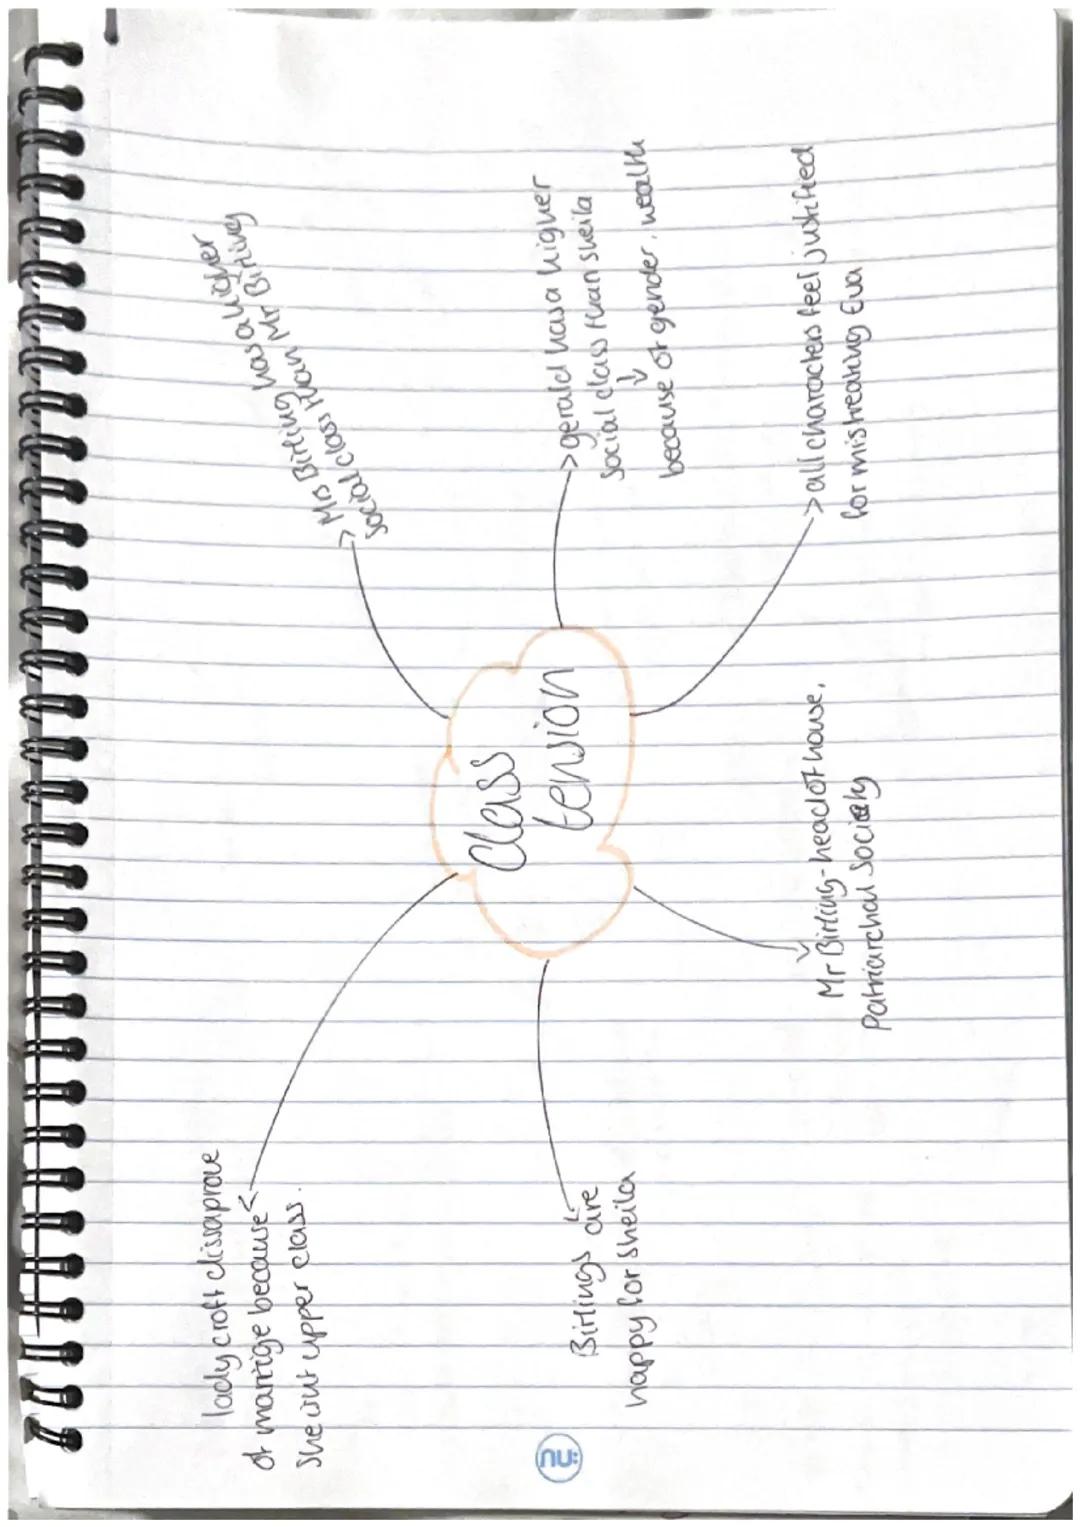 Class
tension
> Mrs Birling has a higher
social class than Mr Birling
> gerald has a higher
social class than sheila
because of gender, wealth
> all characters feel justified
for mistreating Eva
Mr Birling - head of house,
patriarchal society
Birlings are
happy for sheila
lady croft dissaprove
of marrige because
she isnt upper class.
nu